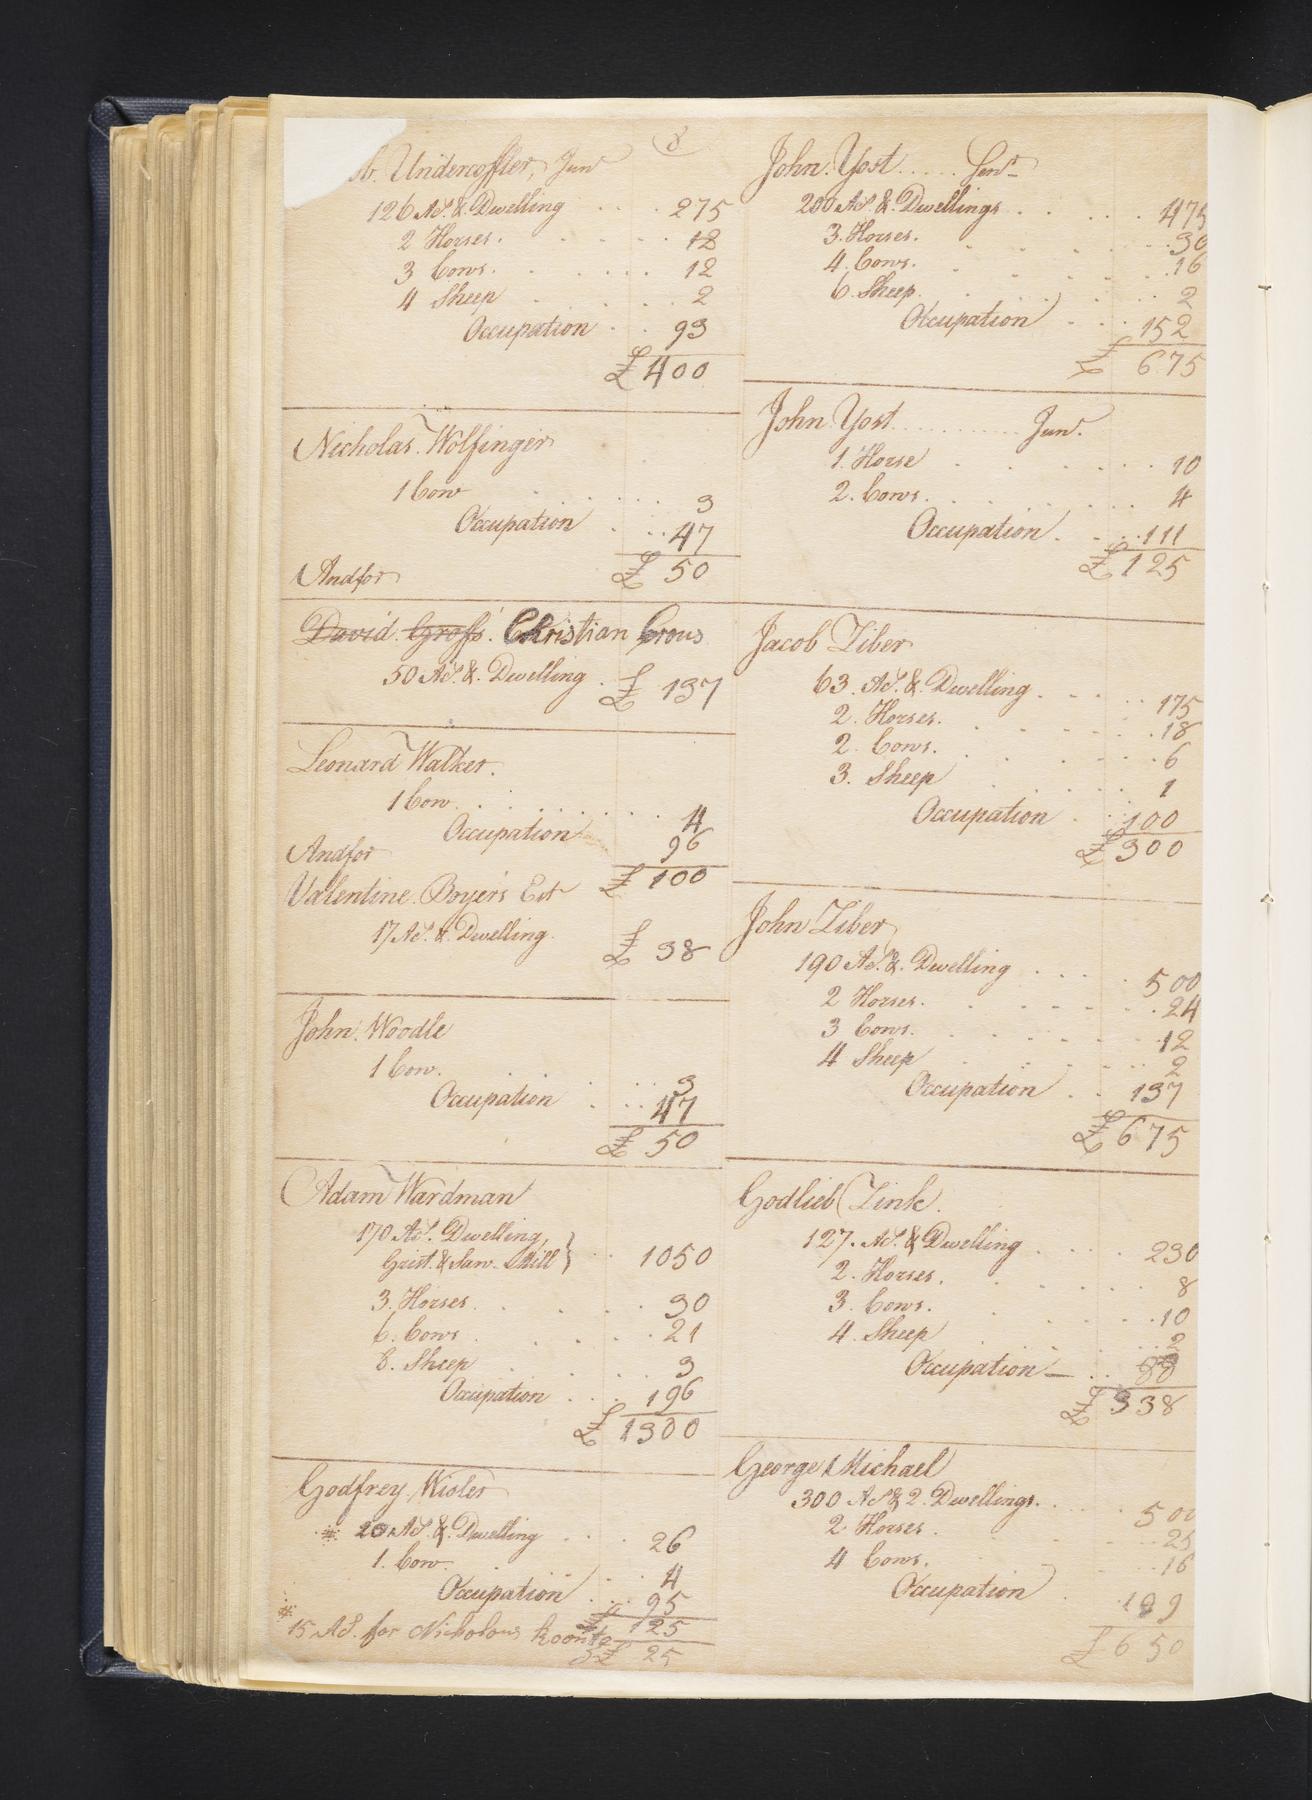 8
ob. Undercoffler, Junr
126 As. & Dwelling .... 275
2 Horses. .... 18
3 Cows. .... 12
4 Sheep .... 2
Occupation .. 93
£ 400
Nicholas Wolfinger
1 Cow .... 3
Occupation .... 47
£ 50
Andfor
David Groff. Christian Crous
50 As. & Dwelling . £ 137
Leonard Walker.
1 Cow .... 4
Occupation 96
£ 100
Andfor
Valentine Boyer's Est
17 As. & Dwelling. £ 38
John Woodle
1 Cow. .... 3
Occupation .... 47
£ 50
Adam Wardman
170 As. Dwelling,
Grist & Saw Mill } .. 1050
3. Horses .... 30
6. Cows .... 21
8. Sheep .... 3
Occupation .... 196
£ 1300
Godfrey Wisler
* 20 As. & Dwelling .. 26
1. Cow .... 4
Occupation ... 95
£ 125
* 15 As. for Nicholous Koontz
£ 25
John Yost ..... Senr
200 As. & Dwellings .... 475
3. Horses. .... 30
4. Cows. .... 16
6. Sheep. .... 2
Occupation .... 152
£ 675
John Yost .......... Junr.
1. Horse .... 10
2. Cows. .... 4
Occupation. .... 111
£ 125
Jacob Ziber
63. As. & Dwelling .... 175
2. Horses. .... 18
2. Cows. .... 6
3. Sheep .... 1
Occupation .. 100
£ 300
John Ziber
190 As. & Dwelling .... 500
2 Horses. .... 24
3 Cows. .... 12
4 Sheep .... 2
Occupation .. 137
£ 675
Godlieb Zink.
127. As. & Dwelling .... 230
2. Horses. .... 8
3. Cows. .... 10
4. Sheep .... 2
Occupation — .. 88
£ 338
George Michael
300 As & 2. Dwellings. .... 500
2 Horses .... 25
4 Cows. .... 16
Occupation . 109
£ 650